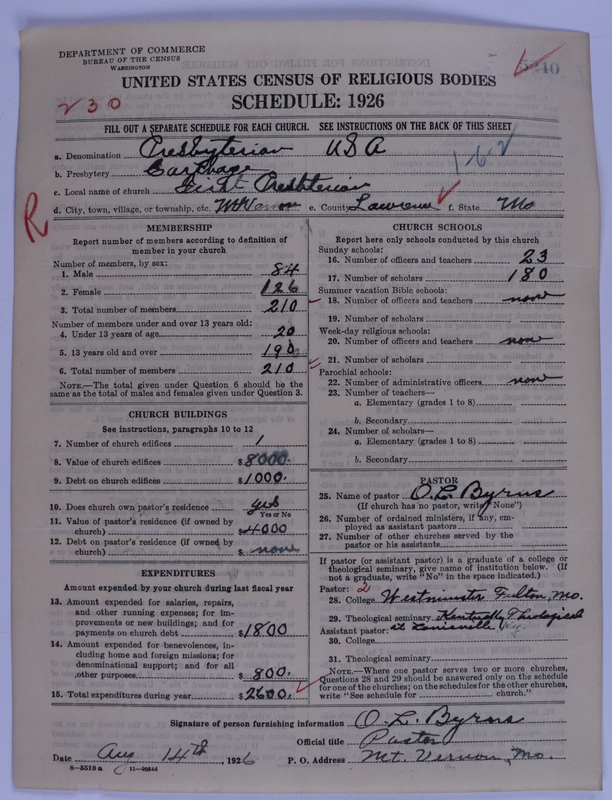 DEPARTMENT OF COMMERCE
BUREAU OF THE CENSUS
WASHINGTON
5240
UNITED STATES CENSUS OF RELIGIOUS BODIES
230
SCHEDULE: 1926
FILL OUT A SEPARATE SCHEDULE FOR EACH CHURCH. SEE INSTRUCTIONS ON THE BACK OF THIS SHEET
a. Denomination Presbyterian USA
1-6-2
b. Presbytery Carthage
c. Local name of church First Presbterian
d. City, town, village, or township, etc. Mt Vernon e. County Lawrence f. State Mo
R
MEMBERSHIP
Report number of members according to definition of
member in your church
Number of members, by sex:
1. Male 84
2. Female 126
3. Total number of members 210
Number of members under and over 13 years old:
4. Under 13 years of age 20
5. 13 years old and over 190
6. Total number of members 210
NOTE.—The total given under Question 6 should be
same as the total of males and females given under Question 3.
CHURCH BUILDINGS
See instructions, paragraphs 10 to 12
7. Number of church edifices 1
8. Value of church edifices $8000.
9. Debt on church edifices $1000.
10. Does church own pastor's residence yes
Yes or No
11. Value of pastor's residence (if owned by
church) $4000
12. Debt on pastor's residence (if owned by
church) $ none
EXPENDITURES
Amount expended by your church during last fiscal year
13. Amount expended for salaries, repairs,
and other running expenses; for im-
provements or new buildings; and for
payments on church debt $1800
14. Amount expended for benevolences, in-
cluding home and foreign missions; for
denominational support; and for all
other purposes $ 800.
15. Total expenditures during year $2600.
CHURCH SCHOOLS
Report here only schools conducted by this church
Sunday schools:
16. Number of officers and teachers 23
17. Number of scholars 180
Summer vacation Bible schools:
18. Number of officers and teachers none
19. Number of scholars
Week-day religious schools:
20. Number of officers and teachers none
21. Number of scholars
Parochial schools:
22. Number of administrative officers none
23. Number of teachers—
a. Elementary (grades 1 to 8)
b. Secondary
24. Number of scholars—
a. Elementary (grades 1 to 8)
b. Secondary
PASTOR
25. Name of pastor O. L. Byrns
(If church has no pastor, write "None")
26. Number of ordained ministers, if any, em-
ployed as assistant pastors
27. Number of other churches served by the
pastor or his assistants
If pastor (or assistant pastor) is a graduate of a college or
theological seminary, give name of institution below. (If
not a graduate, write "No" in the space indicated.)
Pastor: 2
28. College Westminster Fulton, Mo.
29. Theological seminary Kentucky Theological
Assistant pastor: at Louisville Ky.
30. College
31. Theological seminary
NOTE.—Where one pastor serves two or more churches,
Questions 28 and 29 should be answered only on the schedule
for one of the churches; on the schedules for the other churches,
write "See schedule for church."
Signature of person furnishing information O. L. Byrns
Official title Pastor
Date Aug 14th, 1926 P. O. Address Mt. Vernon, Mo.
8-5518a 11-9054d